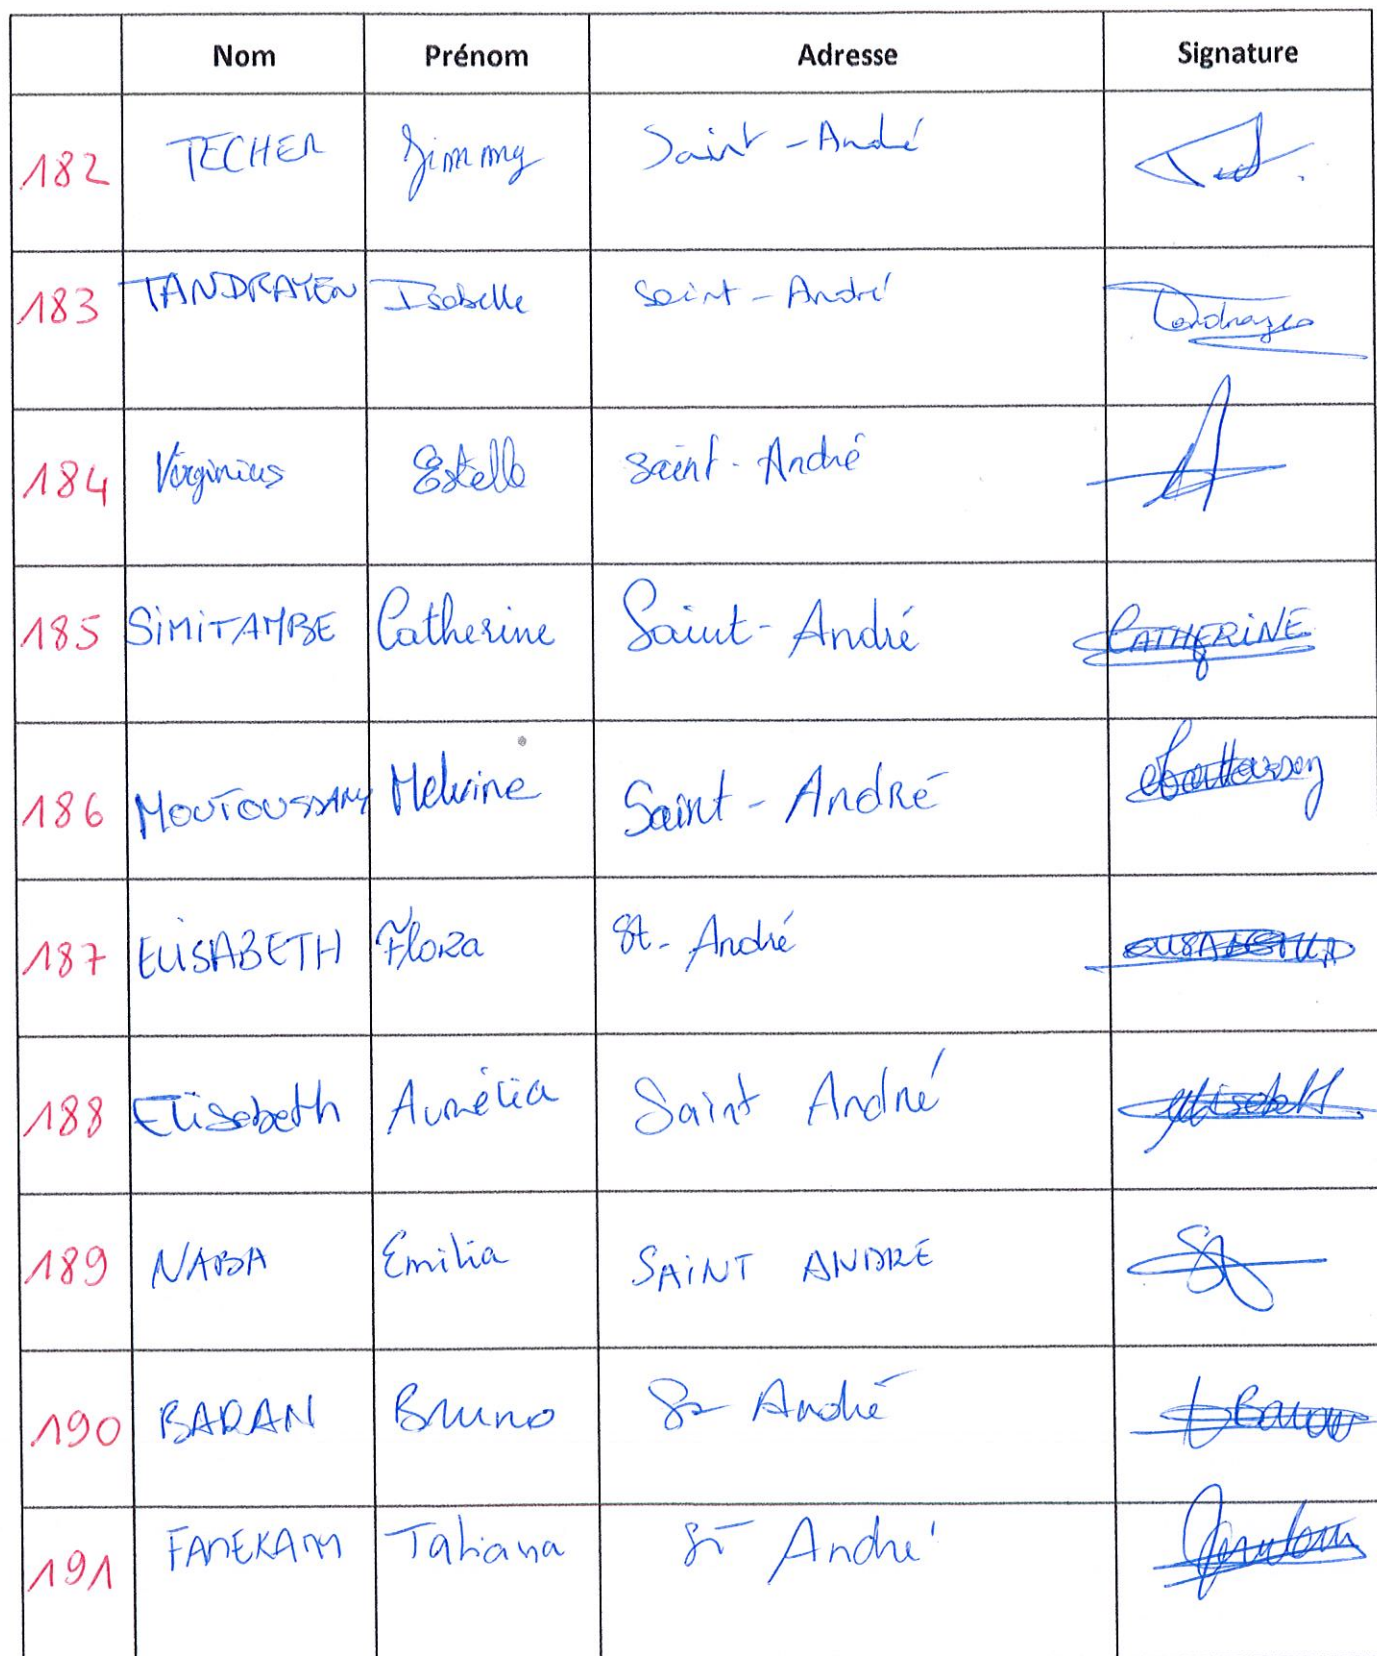 Nom Prénom Adresse Signature
182 TECHER Jimmy Saint-André
183 TANDRAYEN Isabelle Saint-André Tandrayen
184 Virginius Estelle Saint-André
185 SIMITAMBE Catherine Saint-André CATHERINE
186 MOUTOUSSAMY Melvine Saint-André
187 ELISABETH Floza St-André
188 Elisabeth Aurélia Saint André
189 NABA Emilia SAINT ANDRE
190 BARAN Bruno St André
191 FANEKAM Tatiana St André